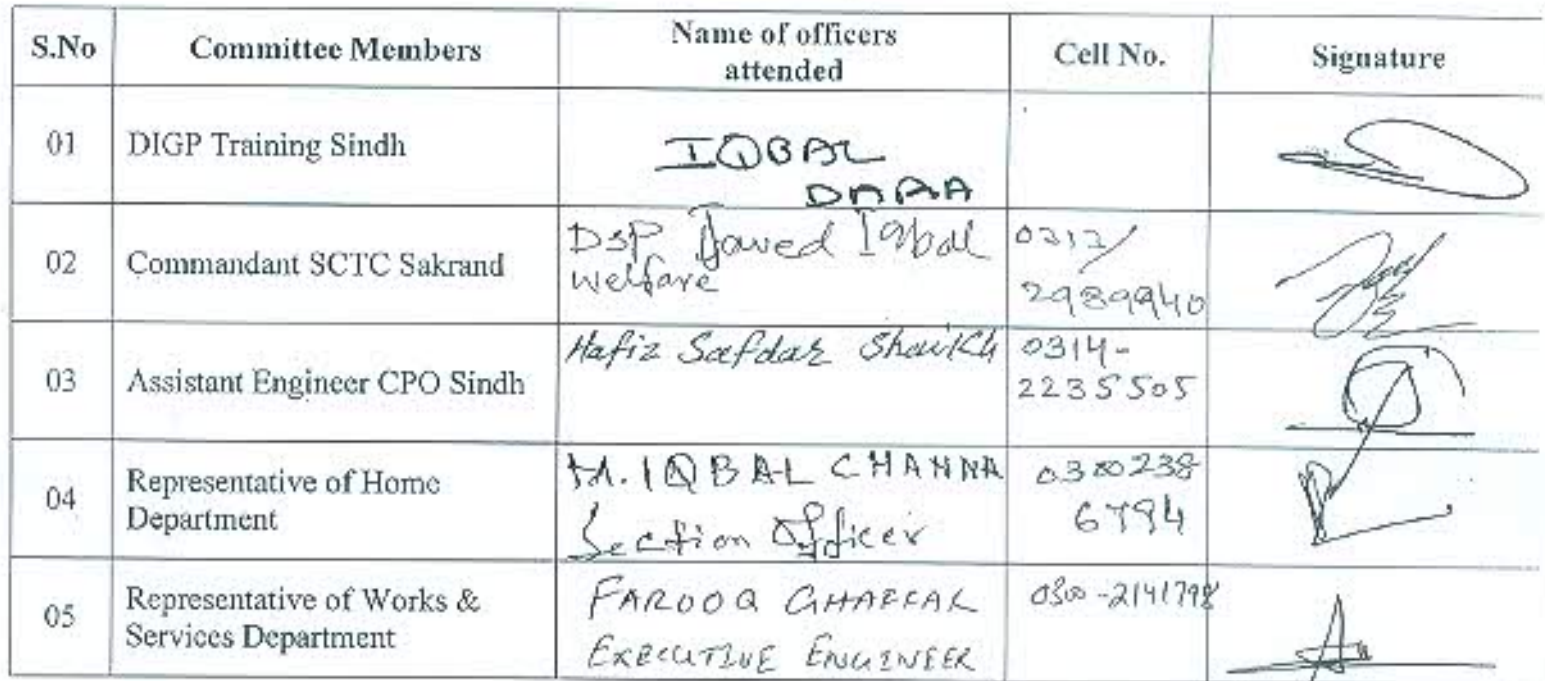 S.No Committee Members Name of officers attended Cell No. Signature
01 DIGP Training Sindh IQBAL DARA
02 Commandant SCTC Sakrand DSP Javed Iqbal welfare 0313/ 2989940
03 Assistant Engineer CPO Sindh Hafiz Safdar Shaikh 0314- 2235505
04 Representative of Home Department M. IQBAL CHANNA Section Officer 0300238 6794
05 Representative of Works & Services Department FAROOQ GHAFFAR EXECUTIVE ENGINEER 0300-2141798